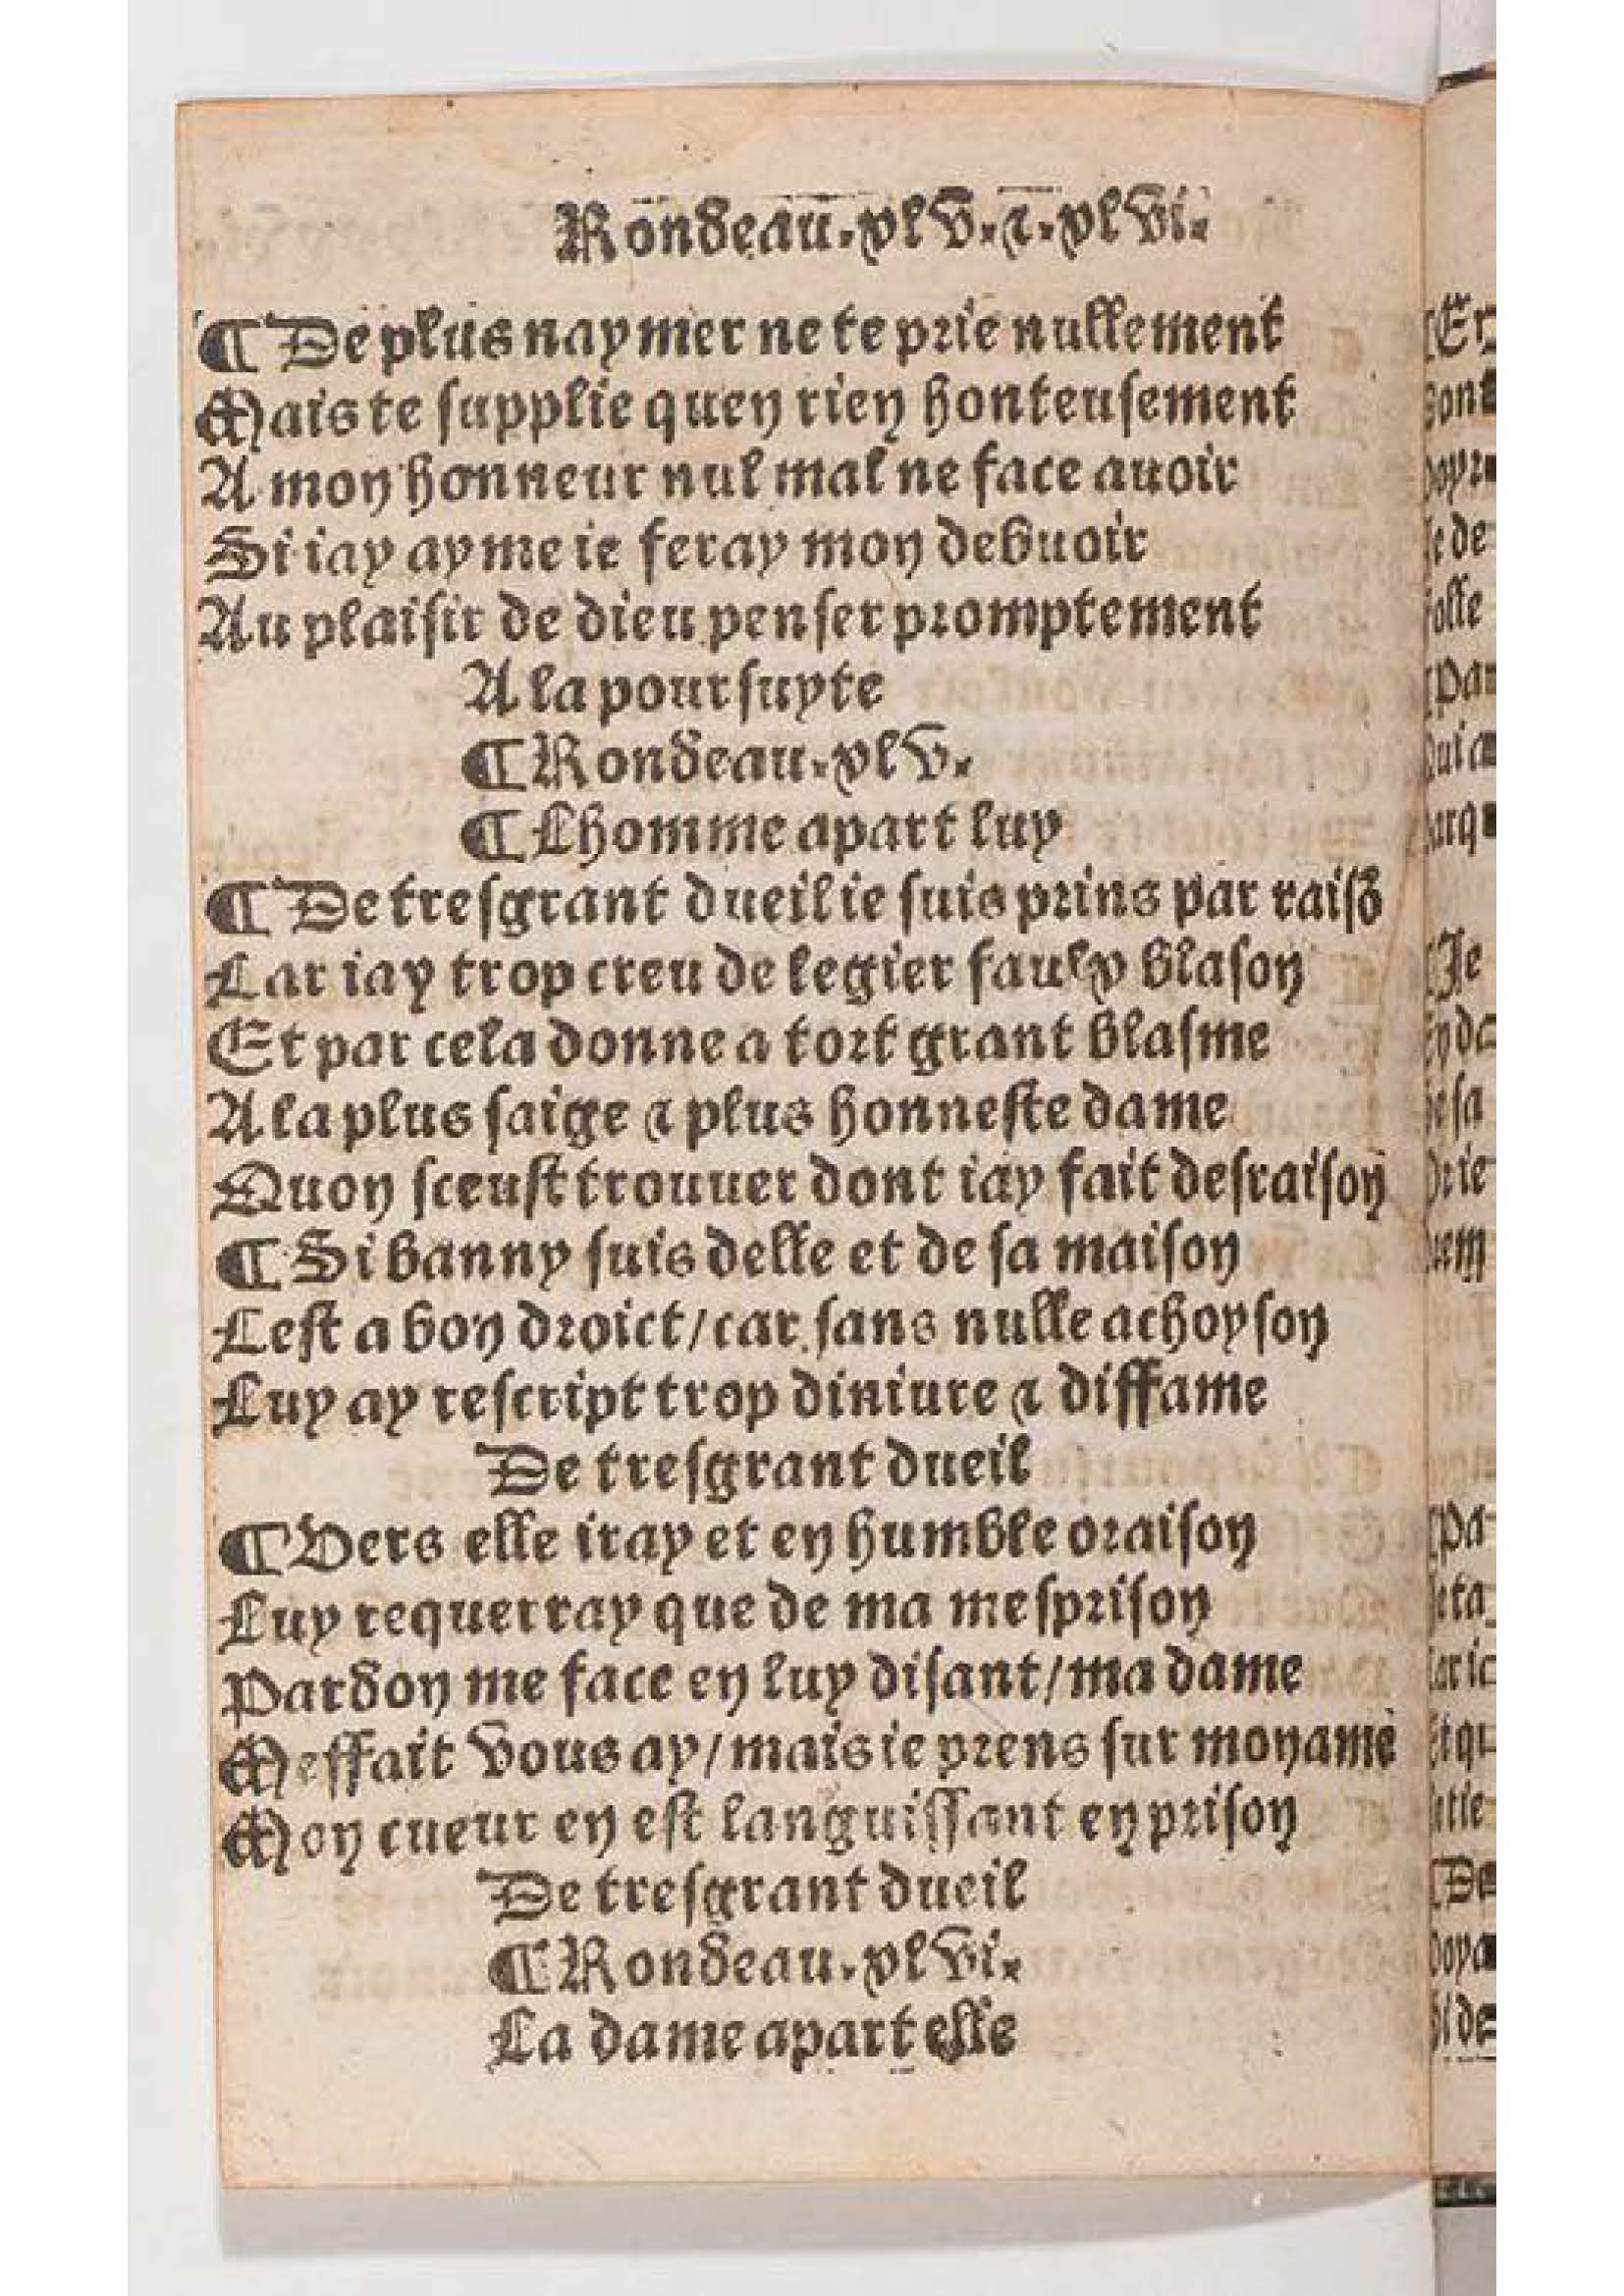 Rondeau.xlv.⁊.xlvi.
¶De plus naymer ne te prie nullement
Mais te supplie quen rien honteusement
A mon honneur nul mal ne face auoir
Si iay ayme ie feray mon debuoir
Au plaisir de dieu penser promptement
A la poursuyte
¶Rondeau.xlv.
¶Lhomme apart luy
¶De tresgrant dueil ie suis prins par raisõ
Car iay trop creu de legier faulx blason
Et par cela donne a tort grant blasme
A la plus saige ⁊ plus honneste dame
Quon sceust trouuer dont iay fait desraison
¶Si banny suis delle et de sa maison
Cest a bon droict/car sans nulle achoyson
Luy ay rescript trop diniure ⁊ diffame
De tresgrant dueil
¶Vers elle iray et en humble oraison
Luy requerray que de ma mesprison
Pardon me face en luy disant/ma dame
Meffait vous ay/mais ie prens sur mon ame
Mon cueur en est languissant en prison
De tresgrant dueil
¶Rondeau.xlvi.
La dame apart elle